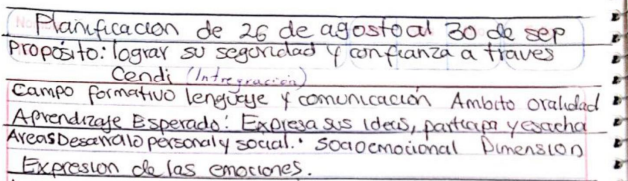 Planificación de 26 de agosto al 30 de sep
Propósito: lograr su seguridad y confianza a traves
Cendi (Intregración)
Campo formativo lenguaje y comunicación Ambito oralidad
Aprendizaje Esperado: Expresa sus ideas, participa y escucha
Areas Desarrollo personal y social. Socioemocional Dimension
Expresion de las emociones.